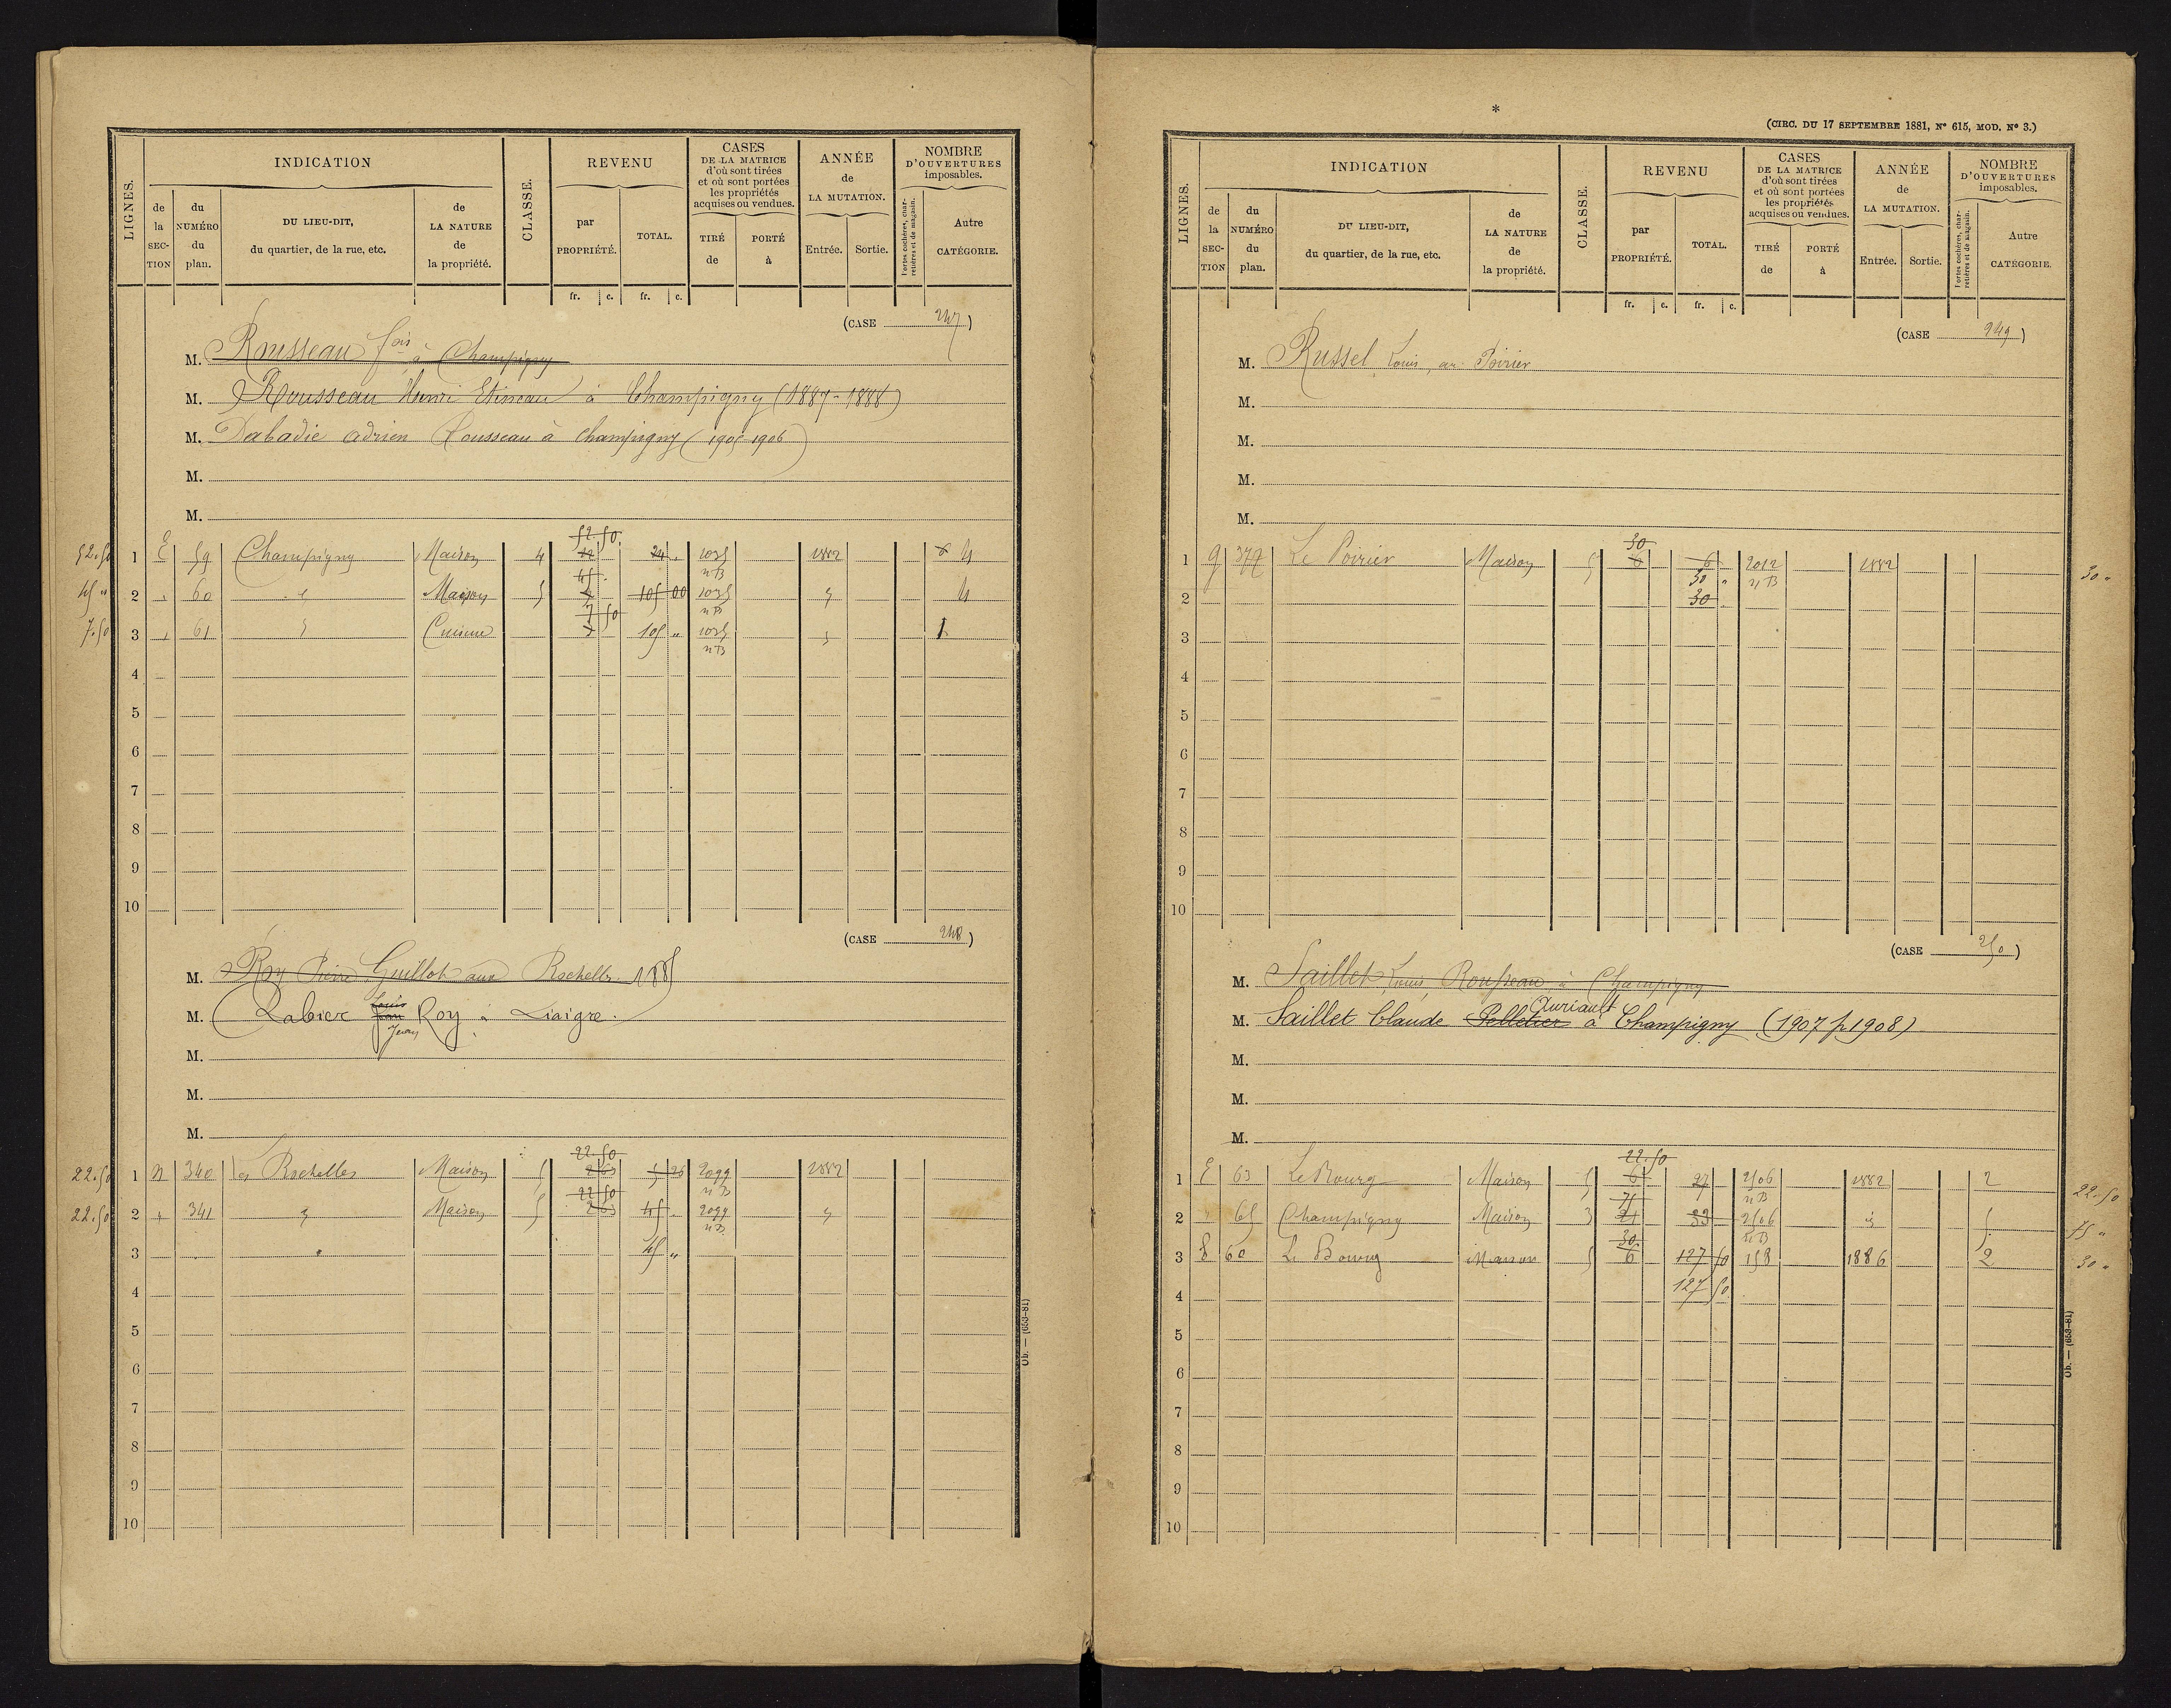 INDICATION
REVENU
CASES
DE LA MATRICE
d'où sont tirées
et où sont portées
les propriétés
acquises ou vendues.
ANNÉE
de
LA MUTATION.
NOMBRE
D'OUVERTURES
imposables.
LIGNES.
de la SECTION
du NUMÉRO du plan.
DU LIEU-DIT,
du quartier, de la rue, etc.
de LA NATURE de la propriété.
CLASSE.
par PROPRIÉTÉ.
TOTAL.
TIRÉ de
PORTÉ à
Entrée.
Sortie.
Portes cochères, charretières et de magasin.
Autre CATÉGORIE.
fr. c. fr. c.
(CASE 247)
M. Rousseau fois à Champigny
M. Rousseau Henri Etineau à Champigny (1887-1888)
M. Dabadie adrien Rousseau à champigny (1905-1906)
M.
M.
52.50 1 E 59 Champigny Maison 4 52.50 12 24 1035 nB 1882 6 4
45 " 2 " 60 " Maison 5 45 105 00 1035 nB " 4
7.50 3 " 61 " Cuisine 7 50 105 " 1035 nB " 1
4
5
6
7
8
9
10
(CASE 248)
M. Roy Pierre Guillot aux Rochelles 1885
M. Rabier Louis Jean Roy à Liaigre.
Jean
M.
M.
M.
22.50 1 N 340 les Rochelles Maison 5 22.50 2 63 5 26 2099 nB 1882
22.50 2 + 341 " Maison 5 22 50 2 63 45 " 2099 nB "
3 45 "
4
5
6
7
8
9
10
Ob. — (653-81)
*
(CIRC. DU 17 SEPTEMBRE 1881, N° 615, MOD. N° 3.)
INDICATION
REVENU
CASES
DE LA MATRICE
d'où sont tirées
et où sont portées
les propriétés
acquises ou vendues.
ANNÉE
de
LA MUTATION.
NOMBRE
D'OUVERTURES
imposables.
LIGNES.
de la SECTION
du NUMÉRO du plan.
DU LIEU-DIT,
du quartier, de la rue, etc.
de LA NATURE de la propriété.
CLASSE.
par PROPRIÉTÉ.
TOTAL.
TIRÉ de
PORTÉ à
Entrée.
Sortie.
Portes cochères, charretières et de magasin.
Autre CATÉGORIE.
fr. c. fr. c.
(CASE 249)
M. Russel Louis, au Poirier
M.
M.
M.
M.
1 G 377 Le Poirier Maison 5 30 6 6 2012 nB 1882 30 "
30 "
2 30
3
4
5
6
7
8
9
10
(CASE 250)
M. Saillet Louis, Rousseau, à Champigny
M. Saillet Claude Pelletier Auriault à Champigny (1907 p 1908)
M.
M.
M.
1 E 63 Le Bourg Maison 5 22.50 6 27 2506 nB 1882 2 22.50
2 " 65 Champigny Maison 3 75 21 33 2506 nB " 5 75 "
3 E 60 Le Bourg Maison 5 30 6 127 50 158 1886 2 30 "
127 50
4
5
6
7
8
9
10
Ob. — (653-81)